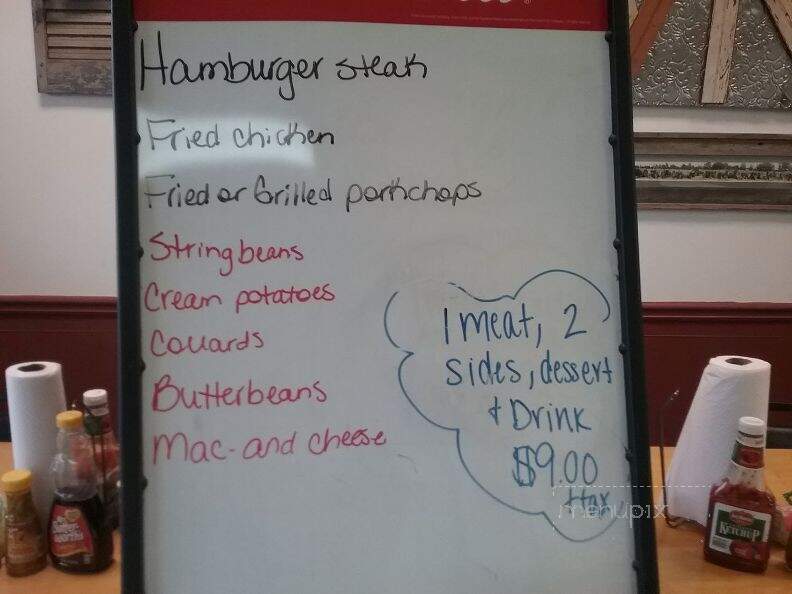 Hamburger steak
Fried chicken
Fried or Grilled porkchops
Stringbeans
Cream potatoes
Collards
Butterbeans
Mac-and cheese
1 meat, 2
sides, dessert
+ Drink
$9.00
+tax
menupix
KETCHUP